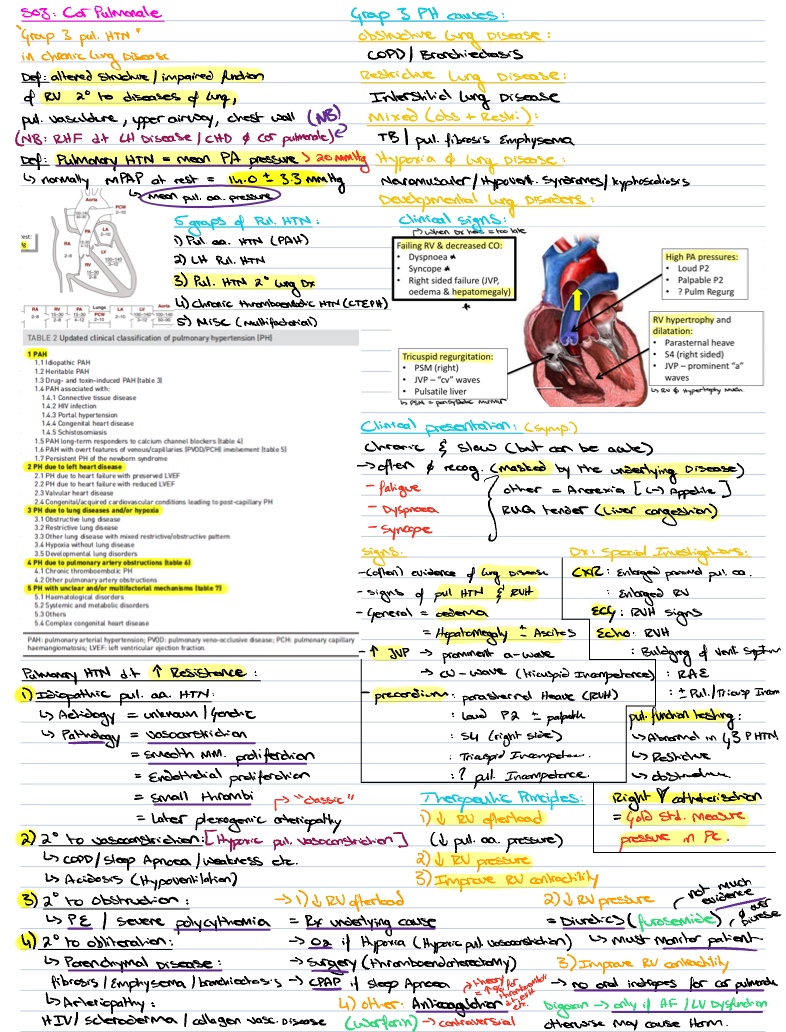 S03: Cor Pulmonale
"Group 3 pul. HTN"
in chronic lung Disease
Def: altered structure / impaired function
of RV 2° to diseases of lung,
pul. vasculature, upper airway, chest wall (NB)
(NB: RHF dt LH Disease / CHD ≠ cor pulmonale)
Def: Pulmonary HTN = mean PA pressure > 20 mmHg
↳ normally mPAP at rest = 14.0 ± 3.3 mmHg
↳ mean pul. aa. pressure
Aorta
PCW
2–10
PA
LA
RA
LV
RV
5 groups of Pul. HTN:
1) Pul. aa. HTN (PAH)
2) LH Pul. HTN
3) Pul. HTN 2° lung Dx
4) Chronic thromboembolic HTN (CTEPH)
5) Misc (multifactorial)
RA RV PA Lungs PCW LA LV Aorta
TABLE 2 Updated clinical classification of pulmonary hypertension (PH)
1 PAH
1.1 Idiopathic PAH
1.2 Heritable PAH
1.3 Drug- and toxin-induced PAH (table 3)
1.4 PAH associated with:
1.4.1 Connective tissue disease
1.4.2 HIV infection
1.4.3 Portal hypertension
1.4.4 Congenital heart disease
1.4.5 Schistosomiasis
1.5 PAH long-term responders to calcium channel blockers (table 4)
1.6 PAH with overt features of venous/capillaries (PVOD/PCH) involvement (table 5)
1.7 Persistent PH of the newborn syndrome
2 PH due to left heart disease
2.1 PH due to heart failure with preserved LVEF
2.2 PH due to heart failure with reduced LVEF
2.3 Valvular heart disease
2.4 Congenital/acquired cardiovascular conditions leading to post-capillary PH
3 PH due to lung diseases and/or hypoxia
3.1 Obstructive lung disease
3.2 Restrictive lung disease
3.3 Other lung disease with mixed restrictive/obstructive pattern
3.4 Hypoxia without lung disease
3.5 Developmental lung disorders
4 PH due to pulmonary artery obstructions (table 6)
4.1 Chronic thromboembolic PH
4.2 Other pulmonary artery obstructions
5 PH with unclear and/or multifactorial mechanisms (table 7)
5.1 Haematological disorders
5.2 Systemic and metabolic disorders
5.3 Others
5.4 Complex congenital heart disease
PAH: pulmonary arterial hypertension; PVOD: pulmonary veno-occlusive disease; PCH: pulmonary capillary
haemangiomatosis; LVEF: left ventricular ejection fraction.
Pulmonary HTN dt ↑ Resistence:
1) Idiopathic pul. aa. HTN:
↳ Aetiology = unknown / Genetic
↳ Pathology = vasoconstriction
= smooth mm. proliferation
= Endothelial proliferation
= small thrombi
= Later plexogenic arteriopathy
→ "classic"
2) 2° to vasoconstriction: [Hypoxic pul. vasoconstriction]
↳ COPD / sleep Apnoea / weakness etc.
↳ Acidosis (Hypoventilation)
3) 2° to obstruction:
↳ PE / severe polycythemia
4) 2° to obliteration:
↳ Parenchymal Disease:
fibrosis / Emphysema / bronchiectasis
↳ Arteriopathy:
HIV / scleroderma / collagen vasc. disease
Group 3 PH causes:
obstructive Lung Disease:
COPD / Bronchiectasis
Restrictive Lung Disease:
Interstitial Lung Disease
Mixed (obs + Restri):
TB / pul. fibrosis Emphysema
Hypoxia ∅ lung disease:
Neuromuscular / Hypovent. Syndromes / kyphoscoliosis
Developmental lung Disorders:
Clinical signs:
→ when Dx here = too late
Failing RV & decreased CO:
• Dyspnoea *
• Syncope *
• Right sided failure (JVP,
oedema & hepatomegaly)
*
High PA pressures:
• Loud P2
• Palpable P2
• ? Pulm Regurg
RV hypertrophy and
dilatation:
• Parasternal heave
• S4 (right sided)
• JVP – prominent "a"
waves
Tricuspid regurgitation:
• PSM (right)
• JVP – "cv" waves
• Pulsatile liver
↳ PSM = pansystolic murmur
Clinical presentation: (symp.)
chronic & slow (but can be acute)
→ often ∅ recog. (masked by the underlying Disease)
- fatigue
- Dyspnoea
- Syncope
other = Anorexia [(-) Appetite]
RUQ tender (Liver congestion)
Signs:
- (often) evidence of lung disease
- signs of pul HTN & RVH
- General = oedema
= Hepatomegaly ± Ascites
- ↑ JVP → prominent a-wave
→ cv-wave (tricuspid Incompetence)
- precordium: parasternal Heave (RVH)
: Loud P2 ± palpable
: S4 (right side)
: Tricuspid Incompeten.
: ? pul. Incompetence.
Dx: Special Investigations:
CXR: Enlarged proximal pul. aa.
: Enlarged RV
ECG: RVH signs
Echo: RVH
: Buldging of Vent Septum
: RAE
: ± Pul. / Tricusp Incom
pul. function testing:
↳ Abnormal in G3 PHTN
↳ Restrictive
↳ obstructive
Right ♥ catheterisation
= Gold std. measure
pressure in PC.
Therapeutic Principles:
1) ↓ RV afterload
(↓ pul. aa. pressure)
2) ↓ RV pressure
3) Improve RV contractility
→ 1) ↓ RV afterload
= Rx underlying cause
→ O2 if Hypoxia (Hypoxic pul. vasoconstriction)
→ surgery (thromboendarterectomy)
→ CPAP if sleep Apnoea
4) other: Anticoagulation
(Warfarin) → controversial
2) ↓ RV pressure
= Diuretics (furosemide)
not much
evidence
∅ over
diurese
↳ must monitor patient
3) Improve RV contractility
→ no oral inotropes for cor pulmonale
Digoxin → only if AF / LV Dysfunction
otherwise may cause Harm.